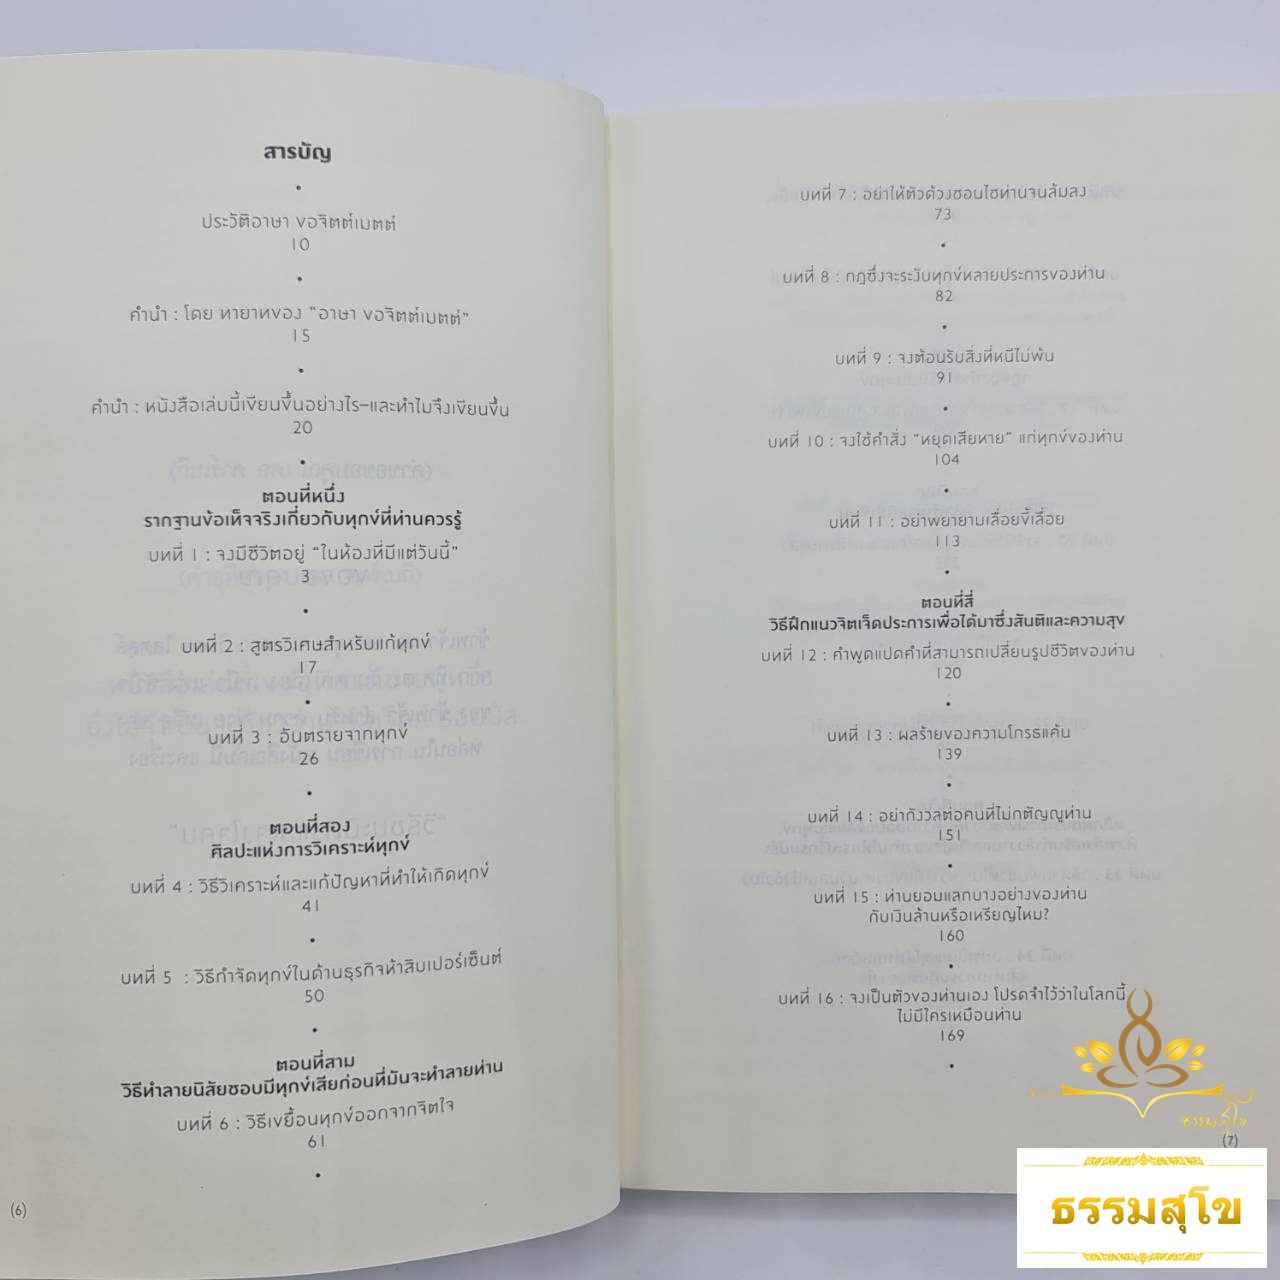 สารบัญ
ประวัติอาษา ขอจิตต์เมตต์
10
คำนำ : โดย ทายาทของ "อาษา ขอจิตต์เมตต์"
15
คำนำ : หนังสือเล่มนี้เขียนขึ้นอย่างไร–และทำไมจึงเขียนขึ้น
20
ตอนที่หนึ่ง
รากฐานข้อเท็จจริงเกี่ยวกับทุกข์ที่ท่านควรรู้
บทที่ 1 : จงมีชีวิตอยู่ "ในห้องที่มีแต่วันนี้"
3
บทที่ 2 : สูตรวิเศษสำหรับแก้ทุกข์
17
บทที่ 3 : อันตรายจากทุกข์
26
ตอนที่สอง
ศิลปะแห่งการวิเคราะห์ทุกข์
บทที่ 4 : วิธีวิเคราะห์และแก้ปัญหาที่ทำให้เกิดทุกข์
41
บทที่ 5 : วิธีกำจัดทุกข์ในด้านธุรกิจห้าสิบเปอร์เซ็นต์
50
ตอนที่สาม
วิธีทำลายนิสัยชอบมีทุกข์เสียก่อนที่มันจะทำลายท่าน
บทที่ 6 : วิธีเขยื้อนทุกข์ออกจากจิตใจ
61
(6)
บทที่ 7 : อย่าให้ตัวด้วงชอนไชท่านจนล้มลง
73
บทที่ 8 : กฎซึ่งจะระงับทุกข์หลายประการของท่าน
82
บทที่ 9 : จงต้อนรับสิ่งที่หนีไม่พ้น
91
บทที่ 10 : จงใช้คำสั่ง "หยุดเสียหาย" แก่ทุกข์ของท่าน
104
บทที่ 11 : อย่าพยายามเลื่อยขี้เลื่อย
113
ตอนที่สี่
วิธีฝึกแนวจิตเจ็ดประการเพื่อได้มาซึ่งสันติและความสุข
บทที่ 12 : คำพูดแปดคำที่สามารถเปลี่ยนรูปชีวิตของท่าน
120
บทที่ 13 : ผลร้ายของความโกรธแค้น
139
บทที่ 14 : อย่ากังวลต่อคนที่ไม่กตัญญูท่าน
151
บทที่ 15 : ท่านยอมแลกบางอย่างของท่าน
กับเงินล้านหรือเหรียญไหม?
160
บทที่ 16 : จงเป็นตัวของท่านเอง โปรดจำไว้ว่าในโลกนี้
ไม่มีใครเหมือนท่าน
169
ธรรมสุโข
(7)
ธรรมสุโข